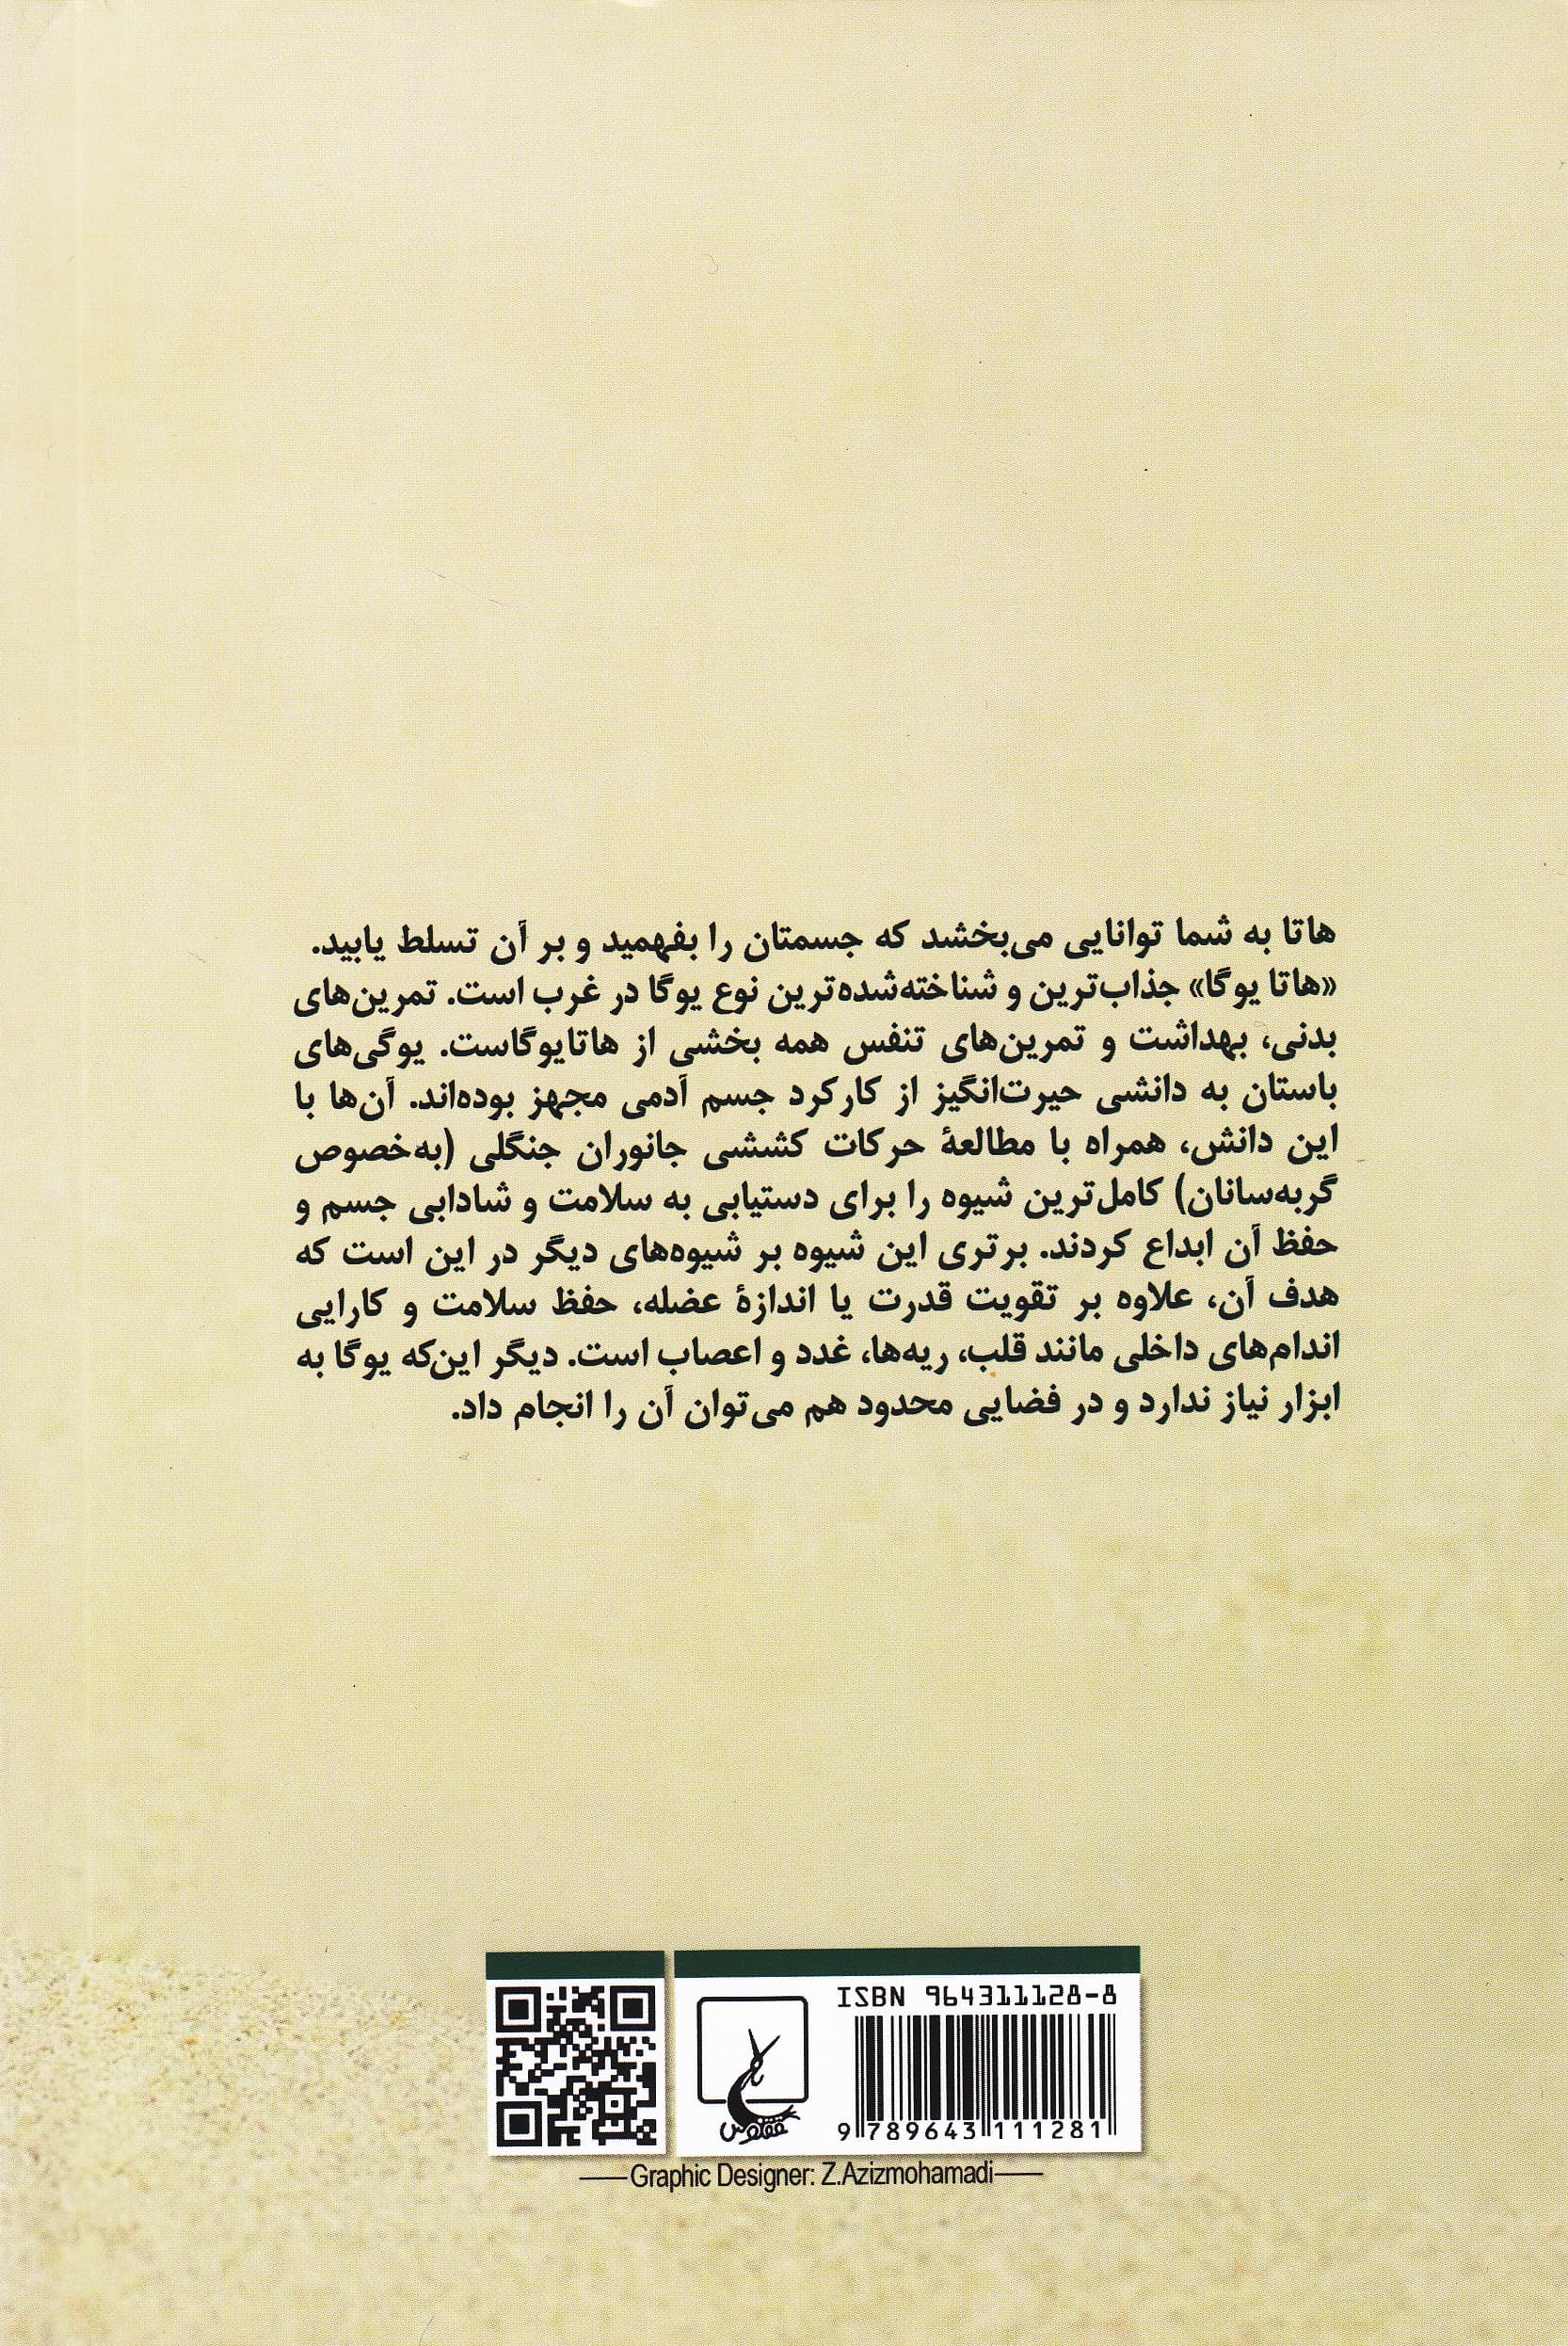 هاتا به شما توانایی می‌بخشد که جسمتان را بفهمید و بر آن تسلط یابید.
«هاتا یوگا» جذاب‌ترین و شناخته‌شده‌ترین نوع یوگا در غرب است. تمرین‌های
بدنی، بهداشت و تمرین‌های تنفس همه بخشی از هاتایوگاست. یوگی‌های
باستان به دانشی حیرت‌انگیز از کارکرد جسم آدمی مجهز بوده‌اند. آن‌ها با
این دانش، همراه با مطالعهٔ حرکات کششی جانوران جنگلی (به‌خصوص
گربه‌سانان) کامل‌ترین شیوه را برای دستیابی به سلامت و شادابی جسم و
حفظ آن ابداع کردند. برتری این شیوه بر شیوه‌های دیگر در این است که
هدف آن، علاوه بر تقویت قدرت یا اندازهٔ عضله، حفظ سلامت و کارایی
اندام‌های داخلی مانند قلب، ریه‌ها، غدد و اعصاب است. دیگر این‌که یوگا به
ابزار نیاز ندارد و در فضایی محدود هم می‌توان آن را انجام داد.
ISBN 964311128-8
ققنوس
9 789643 111281
Graphic Designer: Z.Azizmohamadi